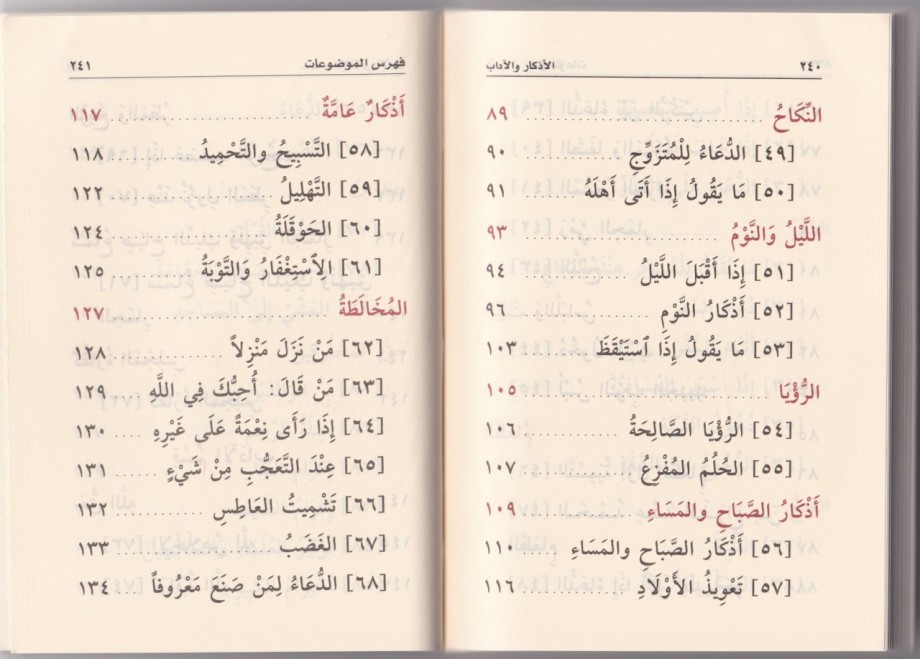 ٢٤٠ الأذكار والآداب
النِّكَاحُ ........ ٨٩
[٤٩] الدُّعَاءُ لِلْمُتَزَوِّجِ ........ ٩٠
[٥٠] مَا يَقُولُ إِذَا أَتَى أَهْلَهُ ........ ٩١
اللَّيْلُ وَالنَّوْمُ ........ ٩٣
[٥١] إِذَا أَقْبَلَ اللَّيْلُ ........ ٩٤
[٥٢] أَذْكَارُ النَّوْمِ ........ ٩٦
[٥٣] مَا يَقُولُ إِذَا اسْتَيْقَظَ ........ ١٠٣
الرُّؤْيَا ........ ١٠٥
[٥٤] الرُّؤْيَا الصَّالِحَةُ ........ ١٠٦
[٥٥] الحُلُمُ المُفْزِعُ ........ ١٠٧
أَذْكَارُ الصَّبَاحِ والمَسَاءِ ........ ١٠٩
[٥٦] أَذْكَارُ الصَّبَاحِ والمَسَاءِ .... ١١٠
[٥٧] تَعْوِيذُ الأَوْلَادِ ........ ١١٦
فهرس الموضوعات ٢٤١
أَذْكَارٌ عَامَّةٌ ........ ١١٧
[٥٨] التَّسْبِيحُ والتَّحْمِيدُ ........ ١١٨
[٥٩] التَّهْلِيلُ ........ ١٢٢
[٦٠] الحَوْقَلَةُ ........ ١٢٤
[٦١] الِاسْتِغْفَارُ وَالتَّوْبَةُ ........ ١٢٥
المُخَالَطَةُ ........ ١٢٧
[٦٢] مَنْ نَزَلَ مَنْزِلاً ........ ١٢٨
[٦٣] مَنْ قَالَ: أُحِبُّكَ فِي اللَّهِ ١٢٩
[٦٤] إِذَا رَأَى نِعْمَةً عَلَى غَيْرِهِ .... ١٣٠
[٦٥] عِنْدَ التَّعَجُّبِ مِنْ شَيْءٍ .... ١٣١
[٦٦] تَشْمِيتُ العَاطِسِ ........ ١٣٢
[٦٧] الغَضَبُ ........ ١٣٣
[٦٨] الدُّعَاءُ لِمَنْ صَنَعَ مَعْرُوفاً .... ١٣٤